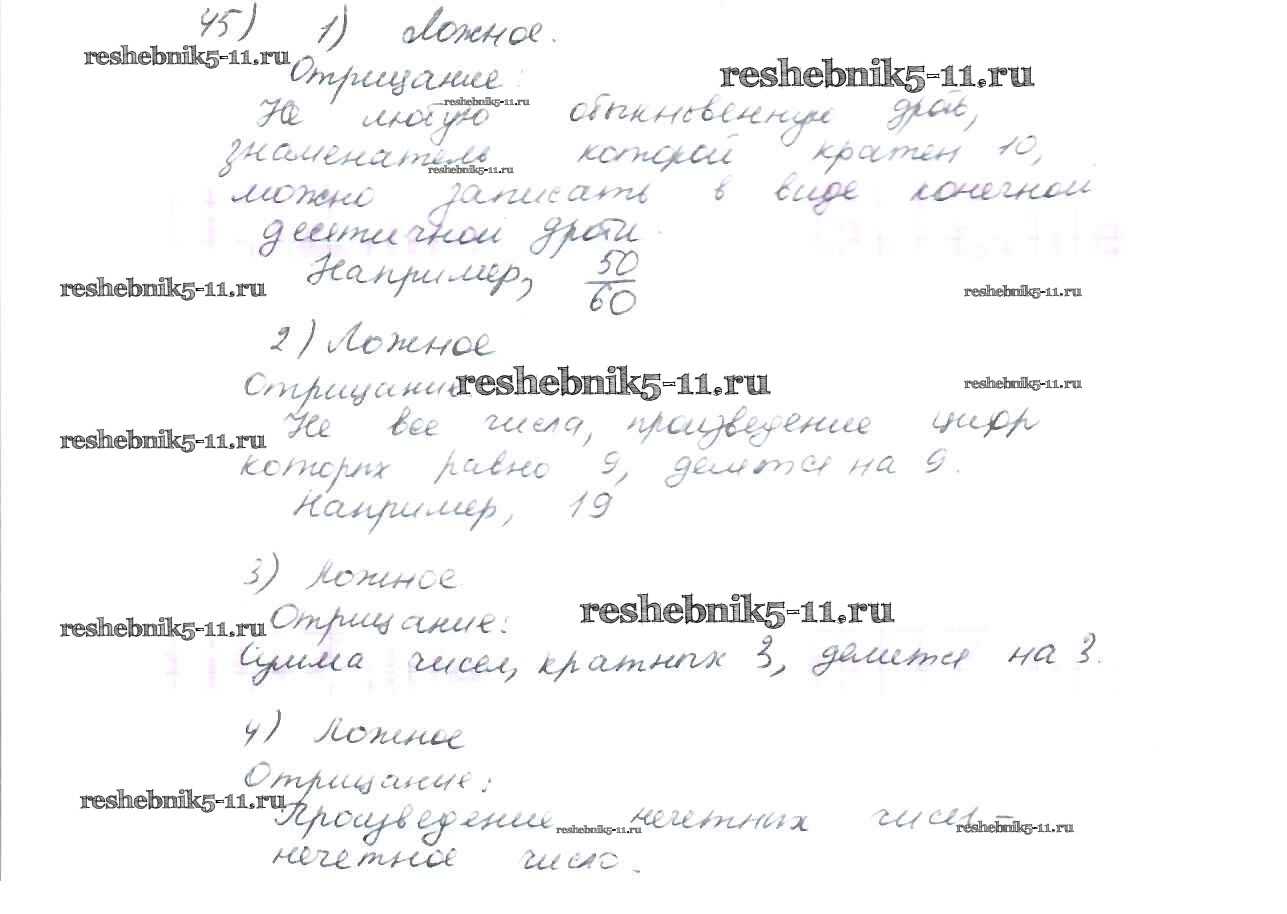 45) 1) Ложное.
reshebnik5-11.ru
Отрицание:
reshebnik5-11.ru
reshebnik5-11.ru
Не любую обыкновенную дробь,
знаменатель которой кратен 10,
reshebnik5-11.ru
можно записать в виде конечной
десятичной дроби.
Например, 50/60
reshebnik5-11.ru
reshebnik5-11.ru
2) Ложное
Отрицание
reshebnik5-11.ru
reshebnik5-11.ru
Не все числа, произведение цифр
reshebnik5-11.ru
которых равно 9, делятся на 9.
Например, 19
3) Ложное
reshebnik5-11.ru
Отрицание:
reshebnik5-11.ru
Сумма чисел, кратных 3, делится на 3.
4) Ложное
Отрицание:
reshebnik5-11.ru
Произведение нечетных чисел –
reshebnik5-11.ru
reshebnik5-11.ru
нечетное число.